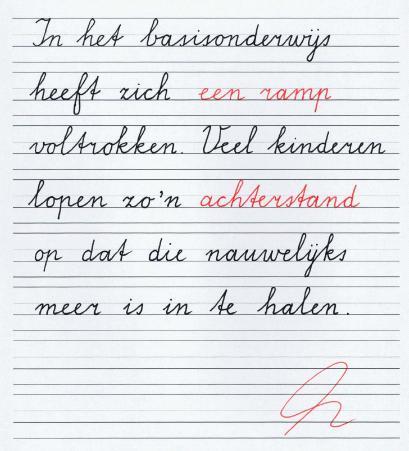 In het basisonderwijs
heeft zich een ramp
voltrokken. Veel kinderen
lopen zo'n achterstand
op dat die nauwelijks
meer is in te halen.